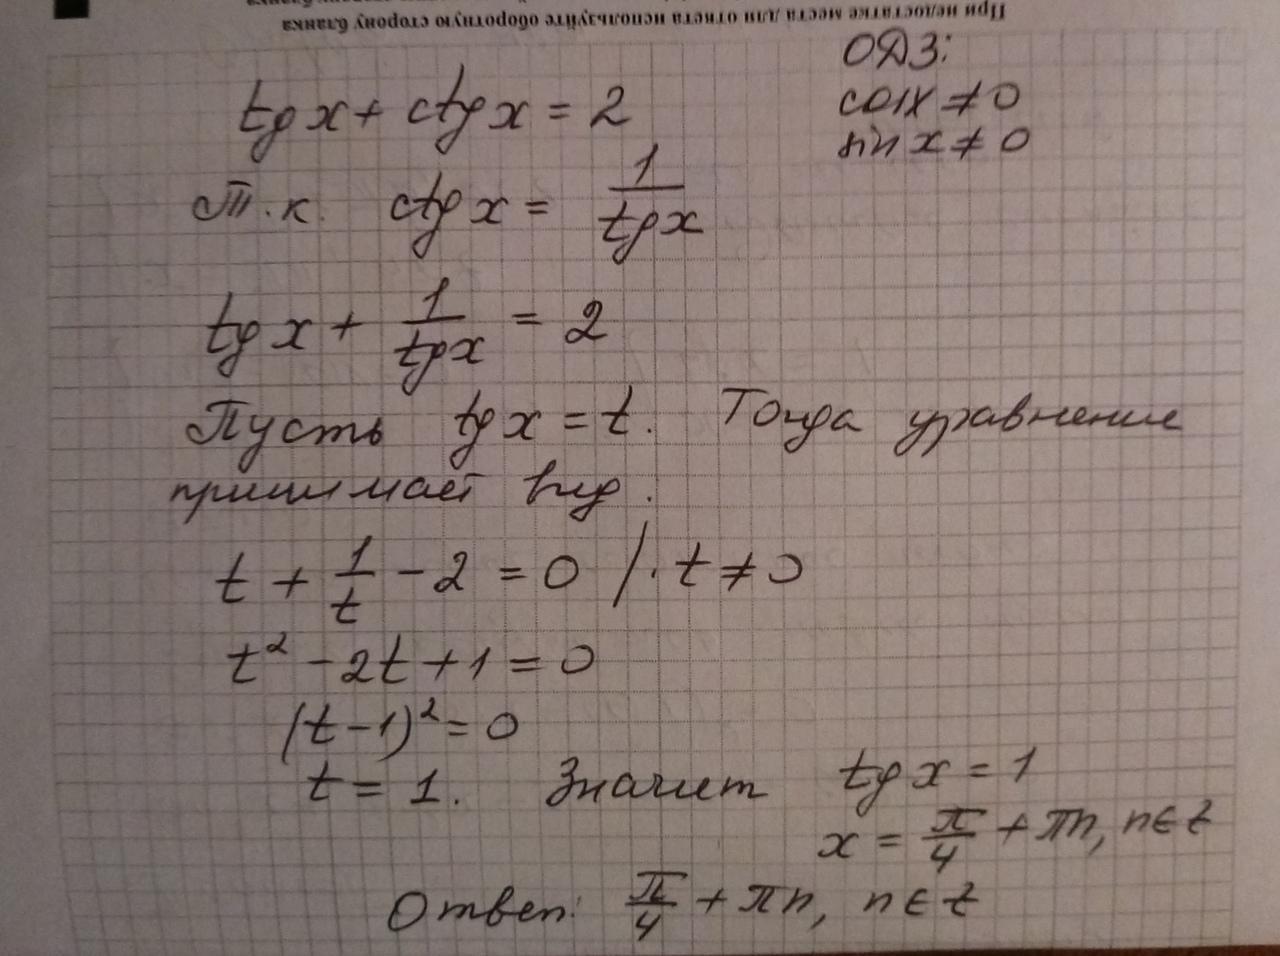 При недостатке места для ответа используйте оборотную сторону бланка
ОДЗ:
cos x ≠ 0
sin x ≠ 0
tg x + ctg x = 2
Т.к. ctg x = 1/tg x
tg x + 1/tg x = 2
Пусть tg x = t. Тогда уравнение
принимает вид:
t + 1/t - 2 = 0 /· t ≠ 0
t² - 2t + 1 = 0
(t - 1)² = 0
t = 1. Значит tg x = 1
x = π/4 + πn, n ∈ Z
Ответ: π/4 + πn, n ∈ Z